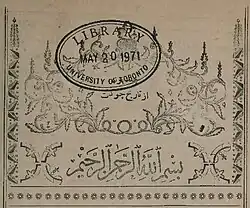 LIBRARY
MAY 20 1971
UNIVERSITY OF TORONTO
از تاریخ
بسم الله الرحمن الرحیم